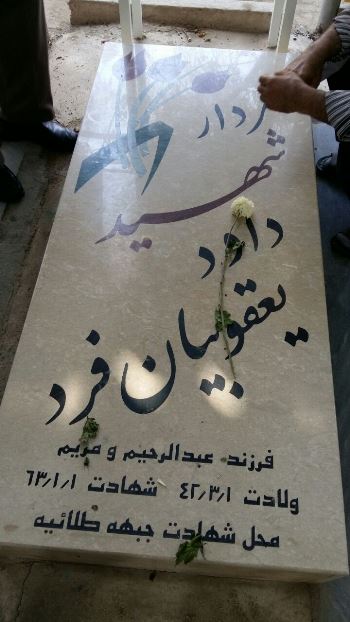 سردار
شهید
داود
یعقوبیان فرد
فرزند عبدالرحیم و مریم
ولادت ۴۲٫۳٫۱ شهادت ۶۳٫۱٫۱
محل شهادت جبهه طلائیه